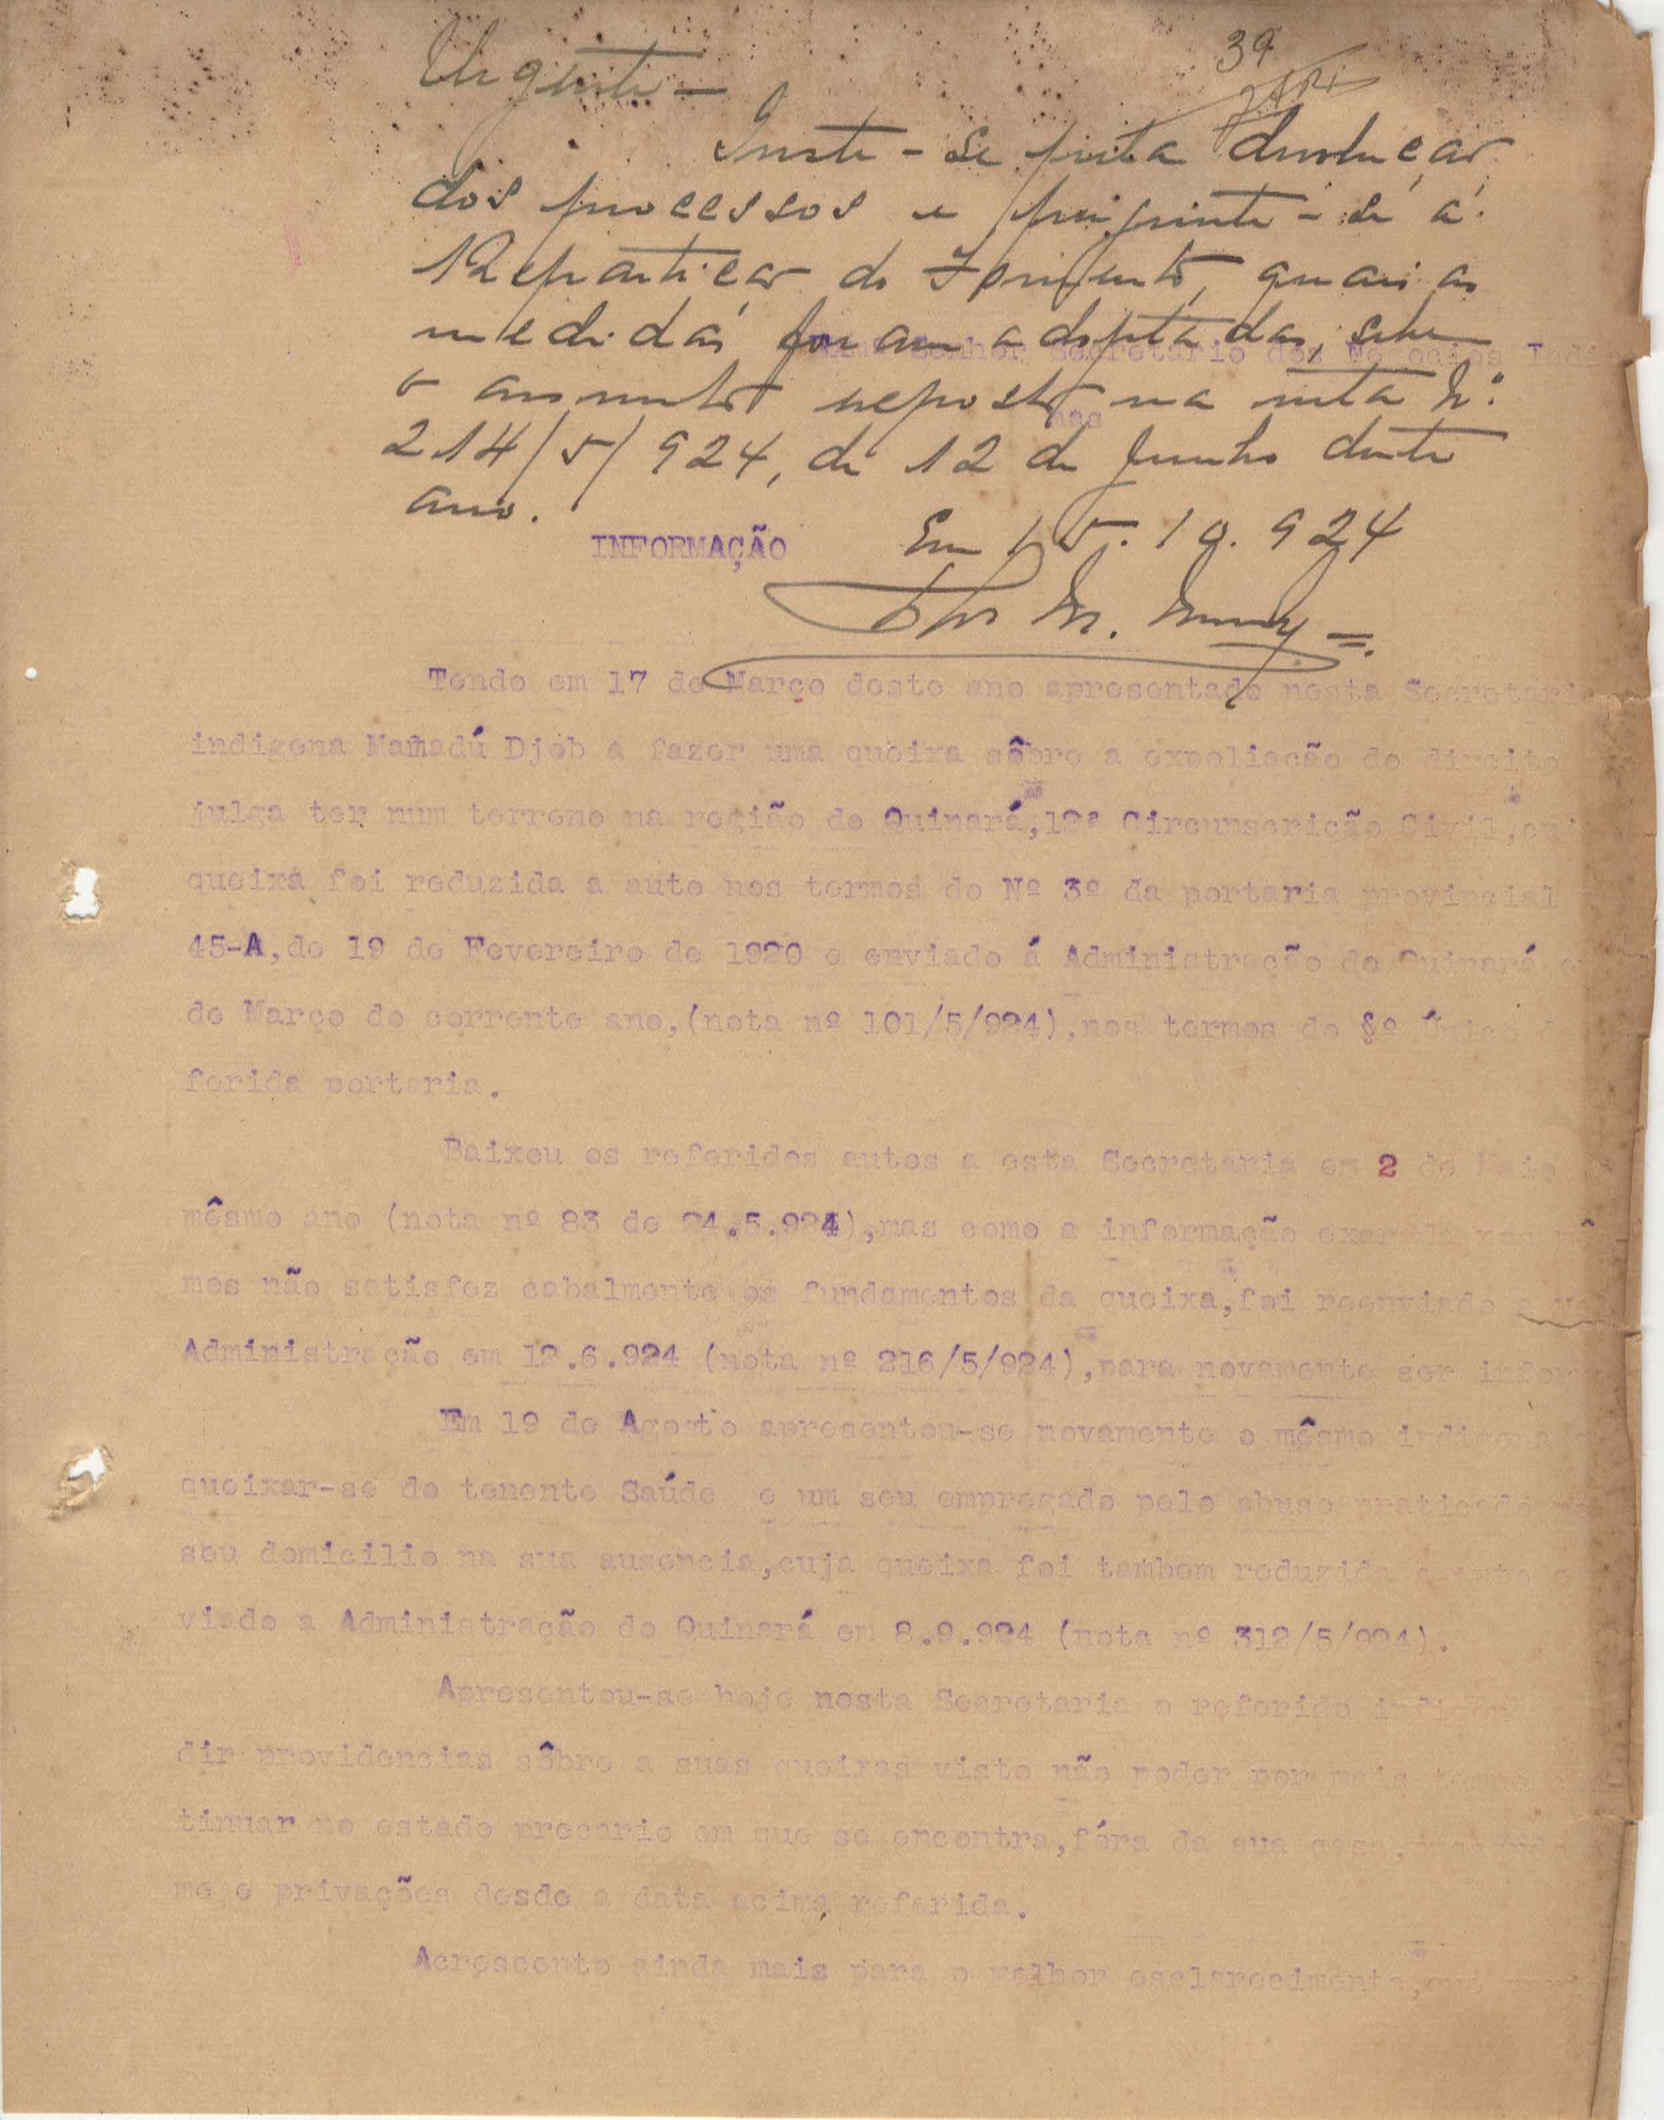 39
Urgente —
Inste-se pela devolução
dos processos e pergunte-se á
Repartição do Fomento, quais as
medidas foram adoptadas, sobre
Senhor Secretario dos Negocios Indi
o assunto exposto na nota Nº
nas
214/5/924, de 12 de Junho deste
ano.
INFORMAÇÃO
Em 15.10.924
Tendo em 17 de Março deste ano apresentado nesta Secretaria
indigena Mamadú Djob a fazer uma queixa sôbre a expoliação do direito
julga ter num terreno na região de Quinará, 12ª Circunscrição Civil,
queixa foi reduzida a auto nos termos do Nº 3º da portaria provincial
45-A, de 19 de Fevereiro de 1920 e enviado á Administração de Quinará
de Março do corrente ano, (nota nº 101/5/924), nos termos do §º
ferida portaria.
Baixou os referidos autos a esta Secretaria em 2 de Maio
mêsmo ano (nota nº 83 de 24.5.924), mas como a informação
mos não satisfez cabalmente os fundamentos da queixa, foi reenviado
Administração em 12.6.924 (nota nº 216/5/924), para novamente ser infor
Em 19 de Agosto apresentou-se novamente o mêsmo indigena
queixar-se do tenente Saúde e um seu empregado pelo abuso praticado
seu domicilio na sua ausencia, cuja queixa foi tambem reduzida a auto
viado a Administração de Quinará em 8.9.924 (nota nº 312/5/924).
Apresentou-se hoje nesta Secretaria o referido
dir providencias sôbre a suas queixas visto não poder por mais tempo
tinuar no estado precario em que se encontra, fóra da sua casa,
me e privações desde a data acima referida.
Acrescento ainda mais para o melhor esclarecimento,